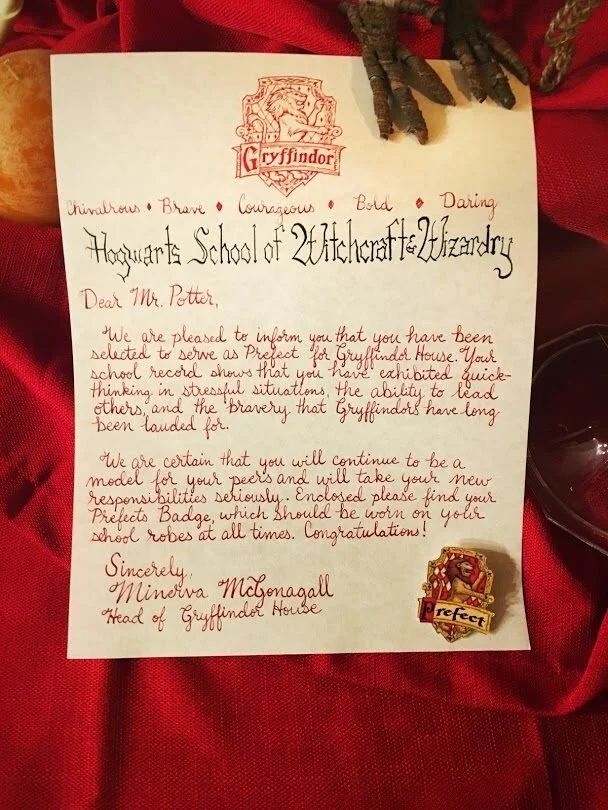 Gryffindor
Chivalrous ♦ Brave ♦ Courageous ♦ Bold ♦ Daring
Hogwarts School of Witchcraft & Wizardry
Dear Mr. Potter,
We are pleased to inform you that you have been
selected to serve as Prefect for Gryffindor House. Your
school record shows that you have exhibited quick-
thinking in stressful situations, the ability to lead
others, and the bravery that Gryffindors have long
been lauded for.
We are certain that you will continue to be a
model for your peers and will take your new
responsibilities seriously. Enclosed please find your
Prefects Badge, which should be worn on your
school robes at all times. Congratulations!
Sincerely,
Minerva McGonagall
Head of Gryffindor House
Prefect